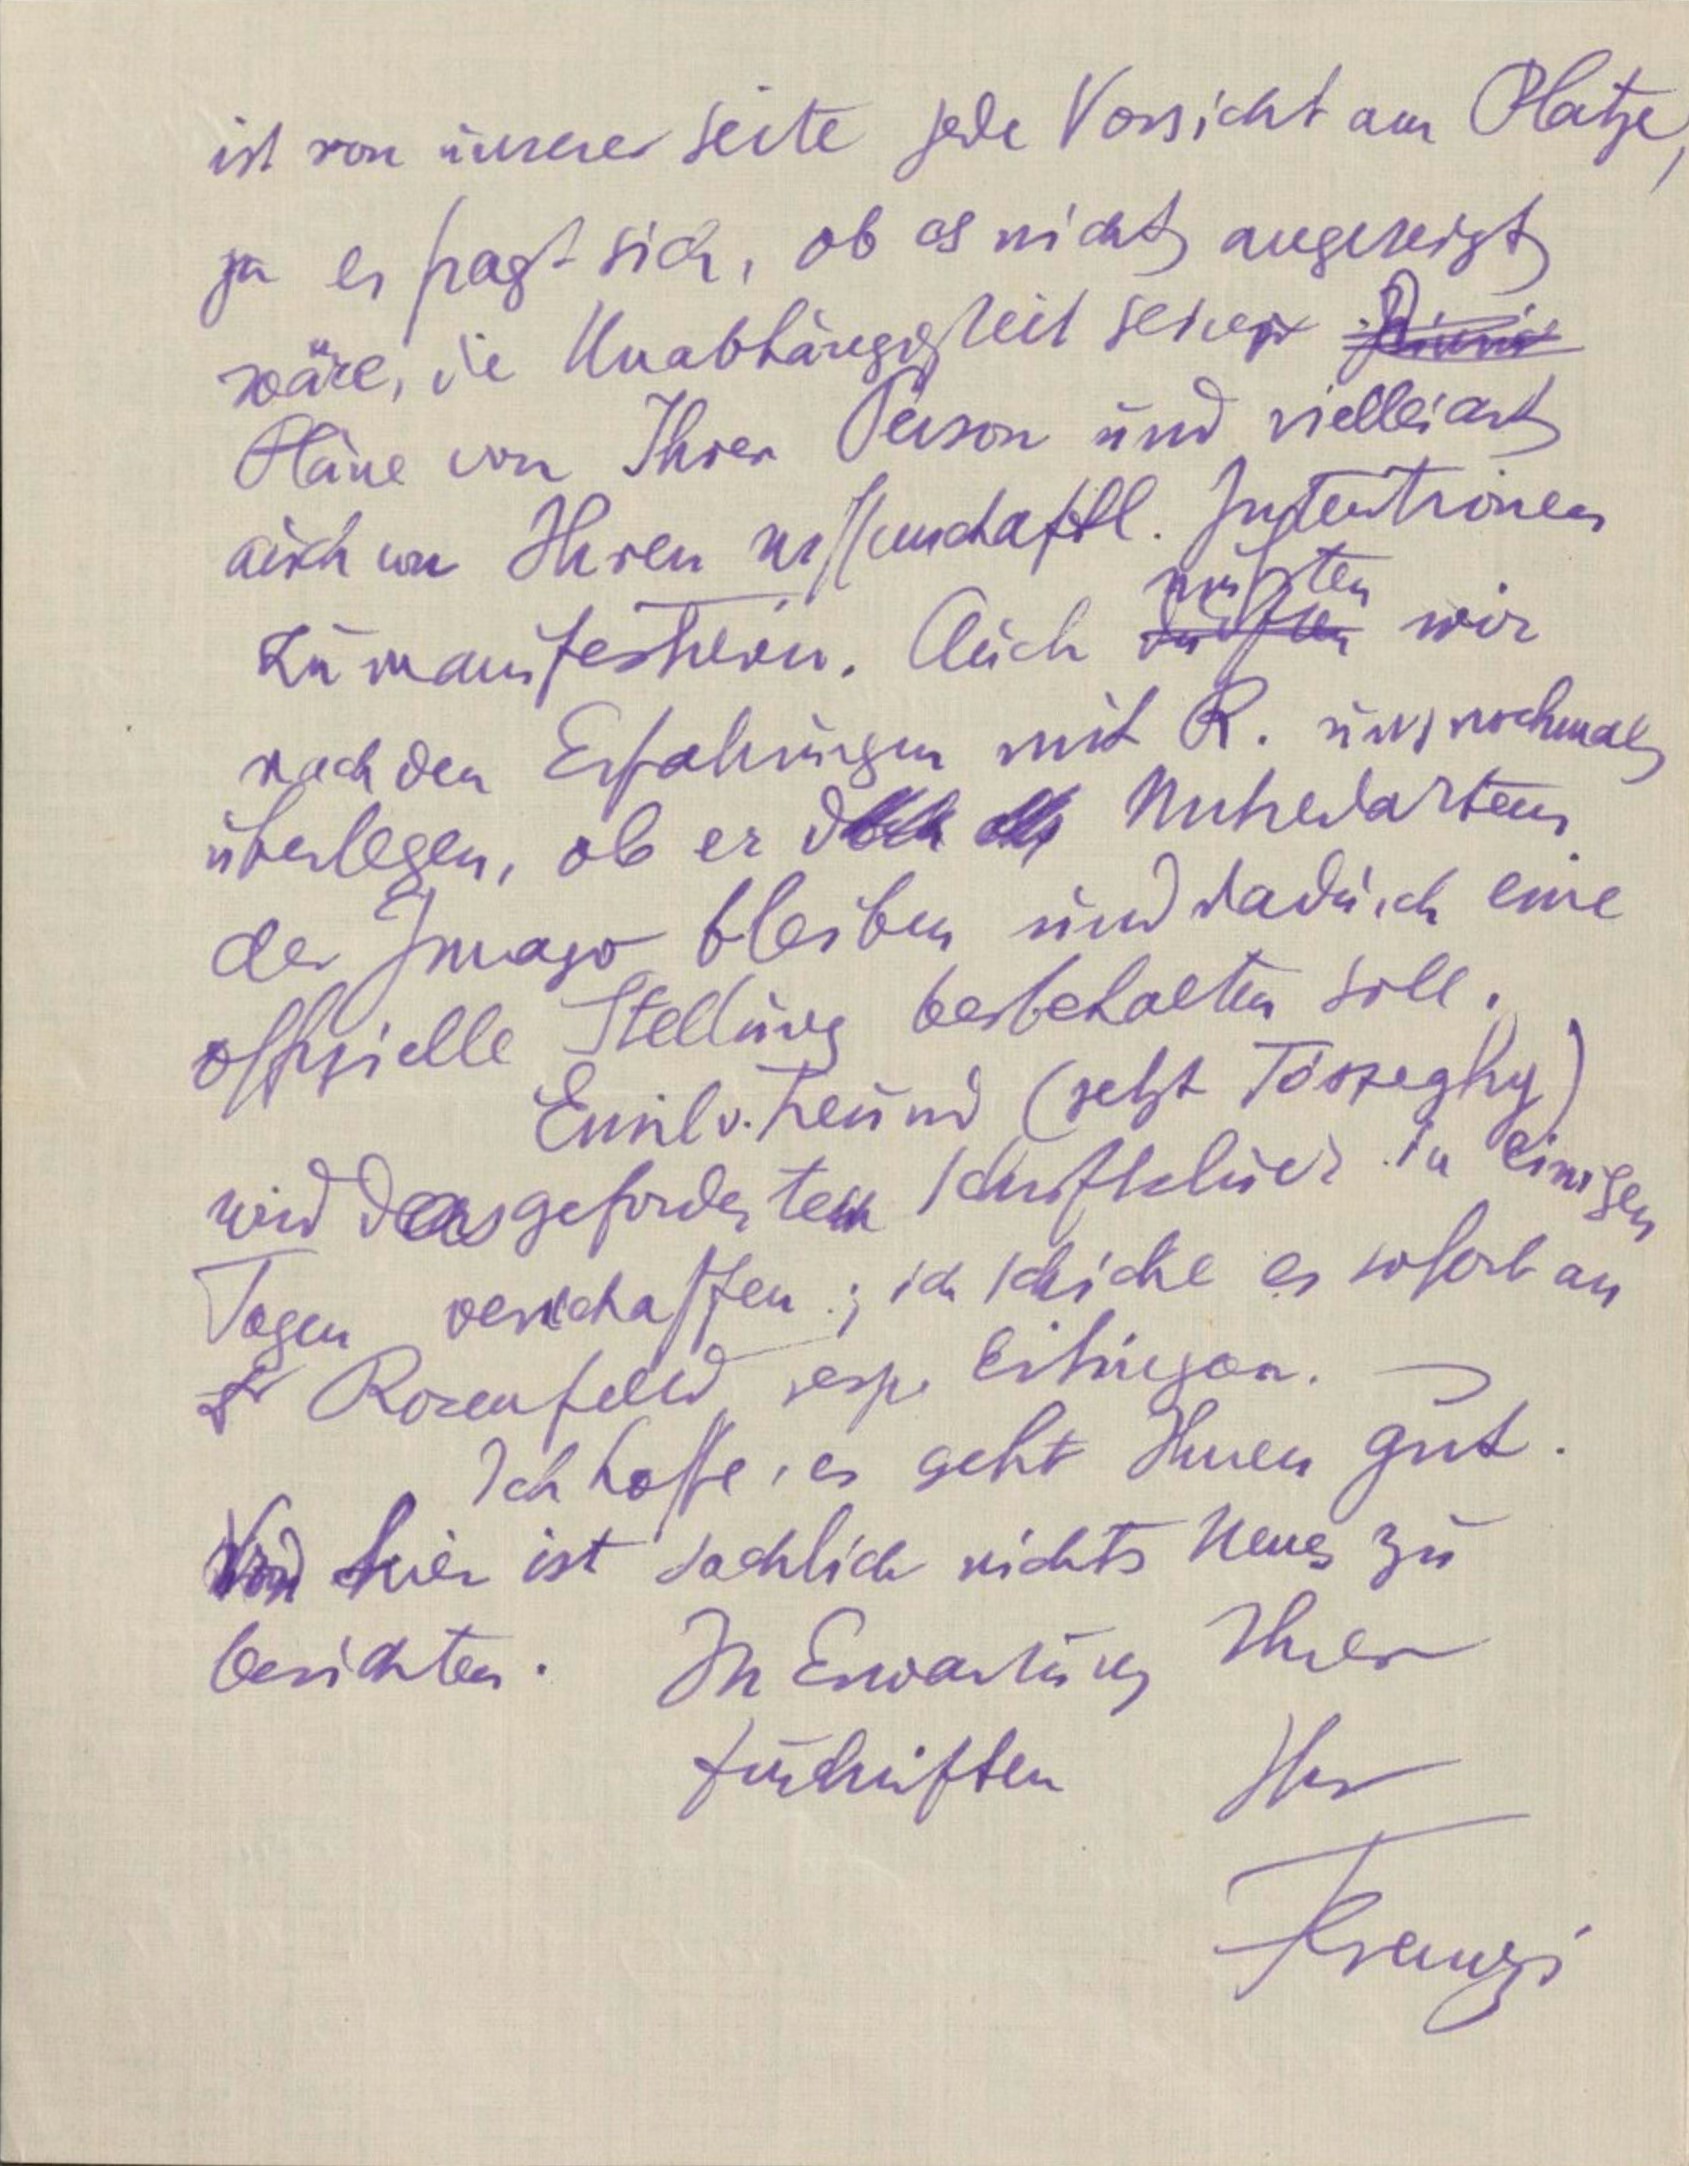 ist von unserer Seite jede Vorsicht am Platze,
ja es fragt sich, ob es nicht angezeigt
wäre, die Unabhängigkeit seiner
Pläne von Ihrer Person und vielleicht
auch von Ihren wissenschaftl. Intentionen
zu manifestieren. Auch müßten dürften wir
nach den Erfahrungen mit R. uns nochmals
überlegen, ob er Mitredakteur
der Imago bleiben und dadurch eine
offizielle Stellung beibehalten soll.
Emil v. Freund (jetzt Tószeghy)
wird das geforderte Schriftstück in einigen
Tagen verschaffen; ich schicke es sofort an
Rosenfeld resp. Eitingon. —
Ich hoffe, es geht Ihnen gut.
Von hier ist sachlich nichts Neues zu
berichten. In Erwartung Ihrer
Zuschriften Ihr
Ferenczi